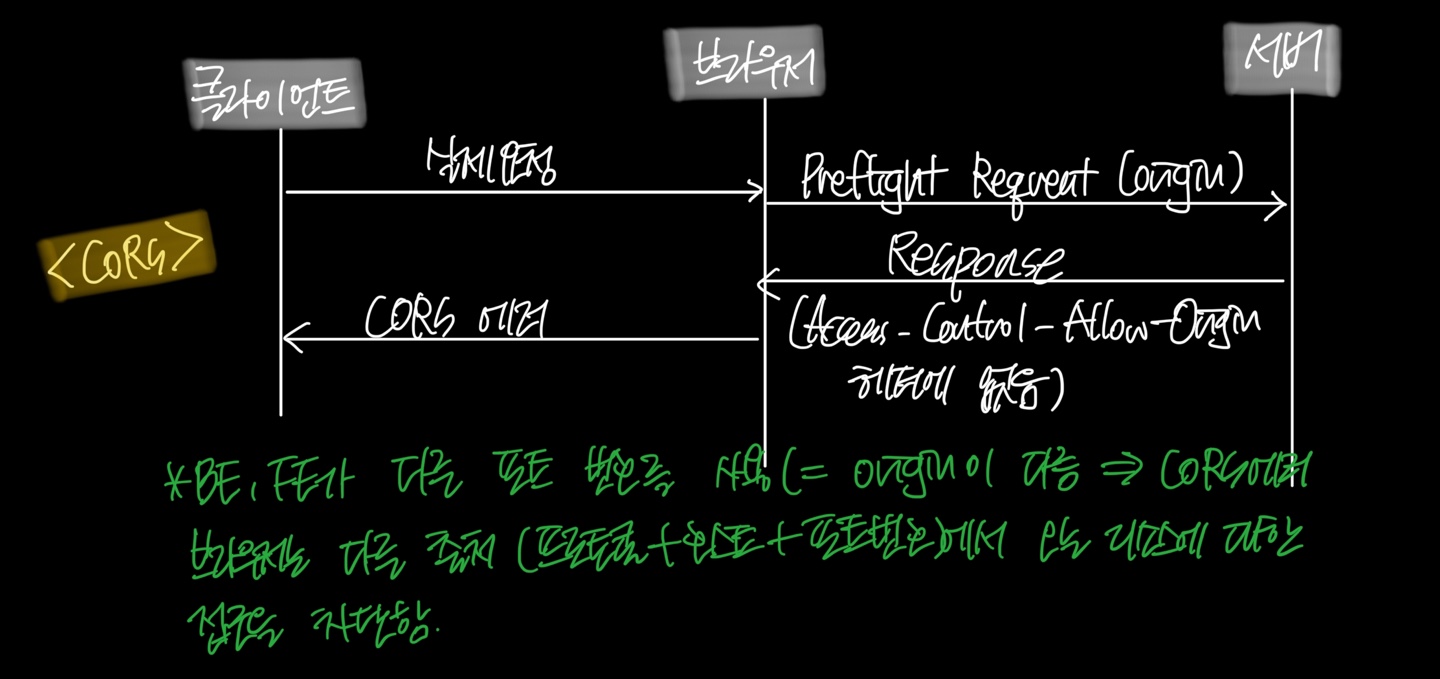 클라이언트
브라우저
서버
날씨요청
Preflight Request (origin)
<CORS>
Response
CORS 에러
(Access-Control-Allow-Origin
헤더에 없음)
*BE, FE가 다른 포트 번호를 사용(= origin이 다름 ⇒ CORS에러
브라우저는 다른 출처 (프로토콜+호스트+포트번호)에서 온 리소스에 대한
접근을 차단함.